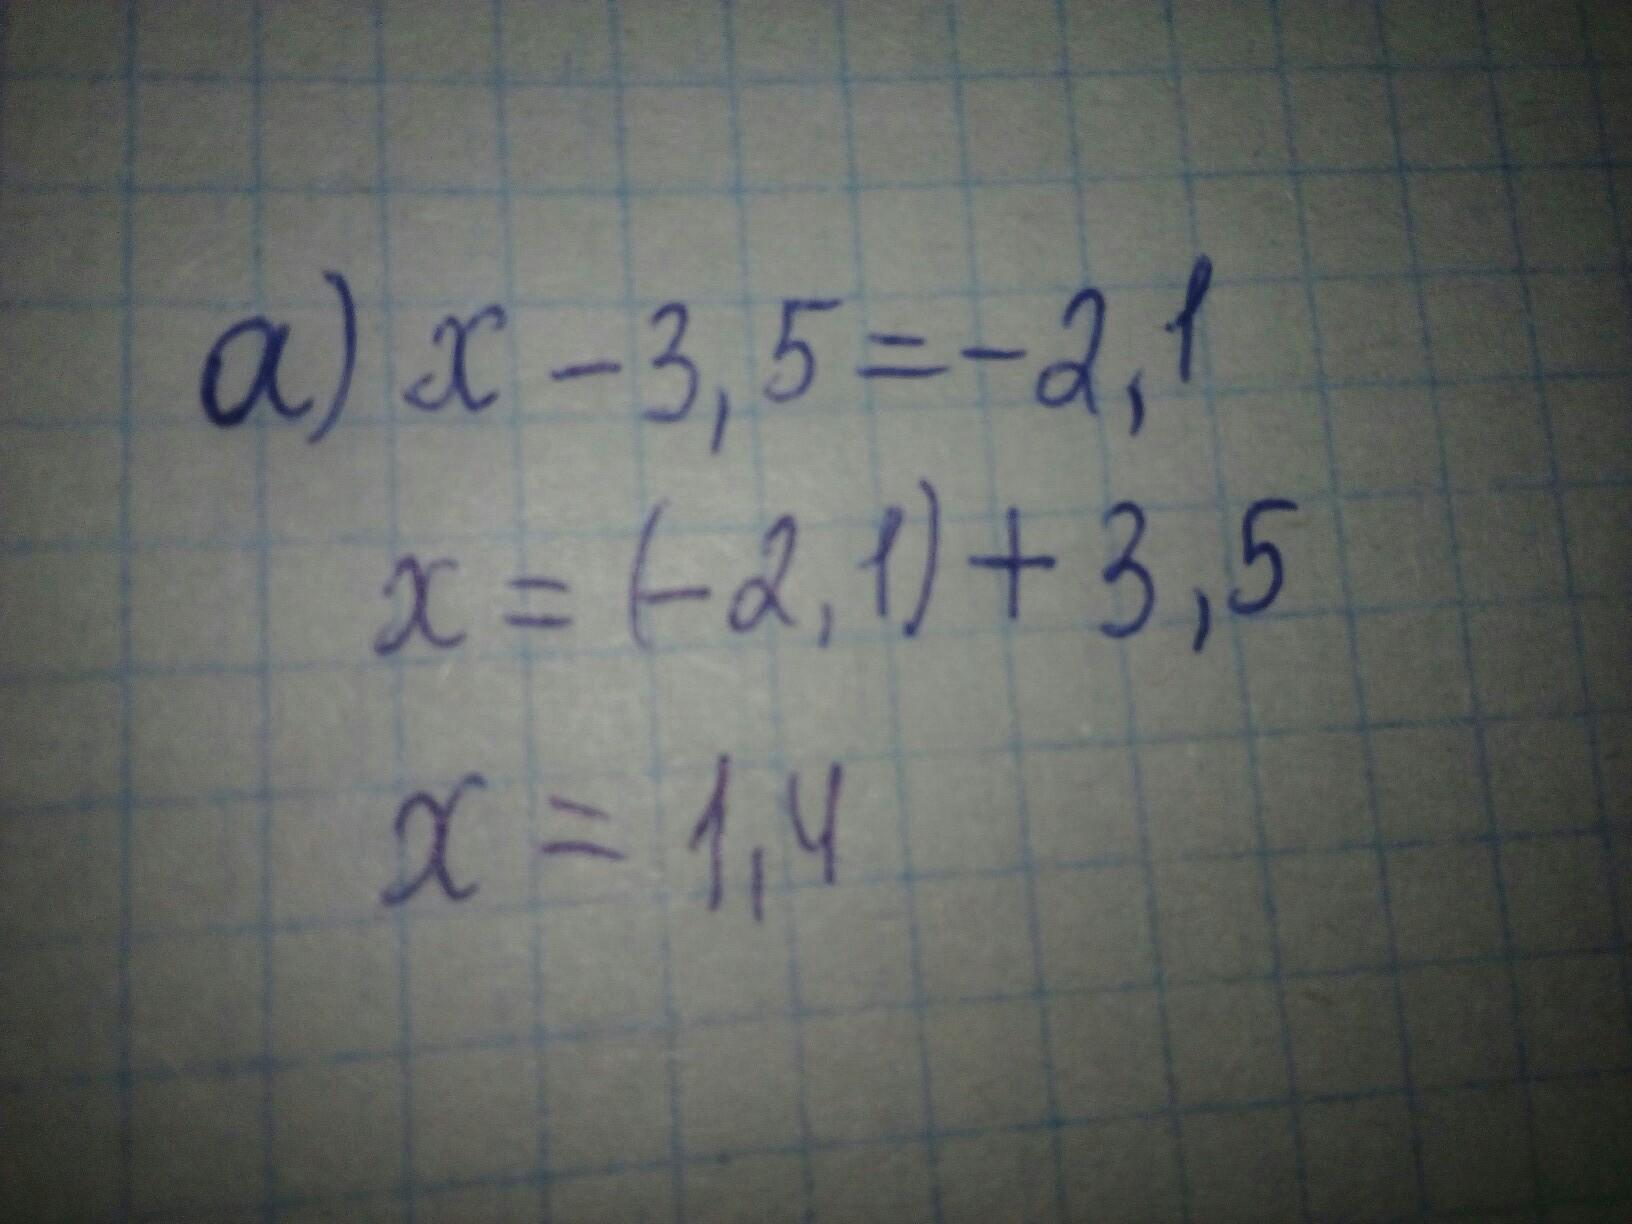 а) x - 3,5 = -2,1
x = (-2,1) + 3,5
x = 1,4